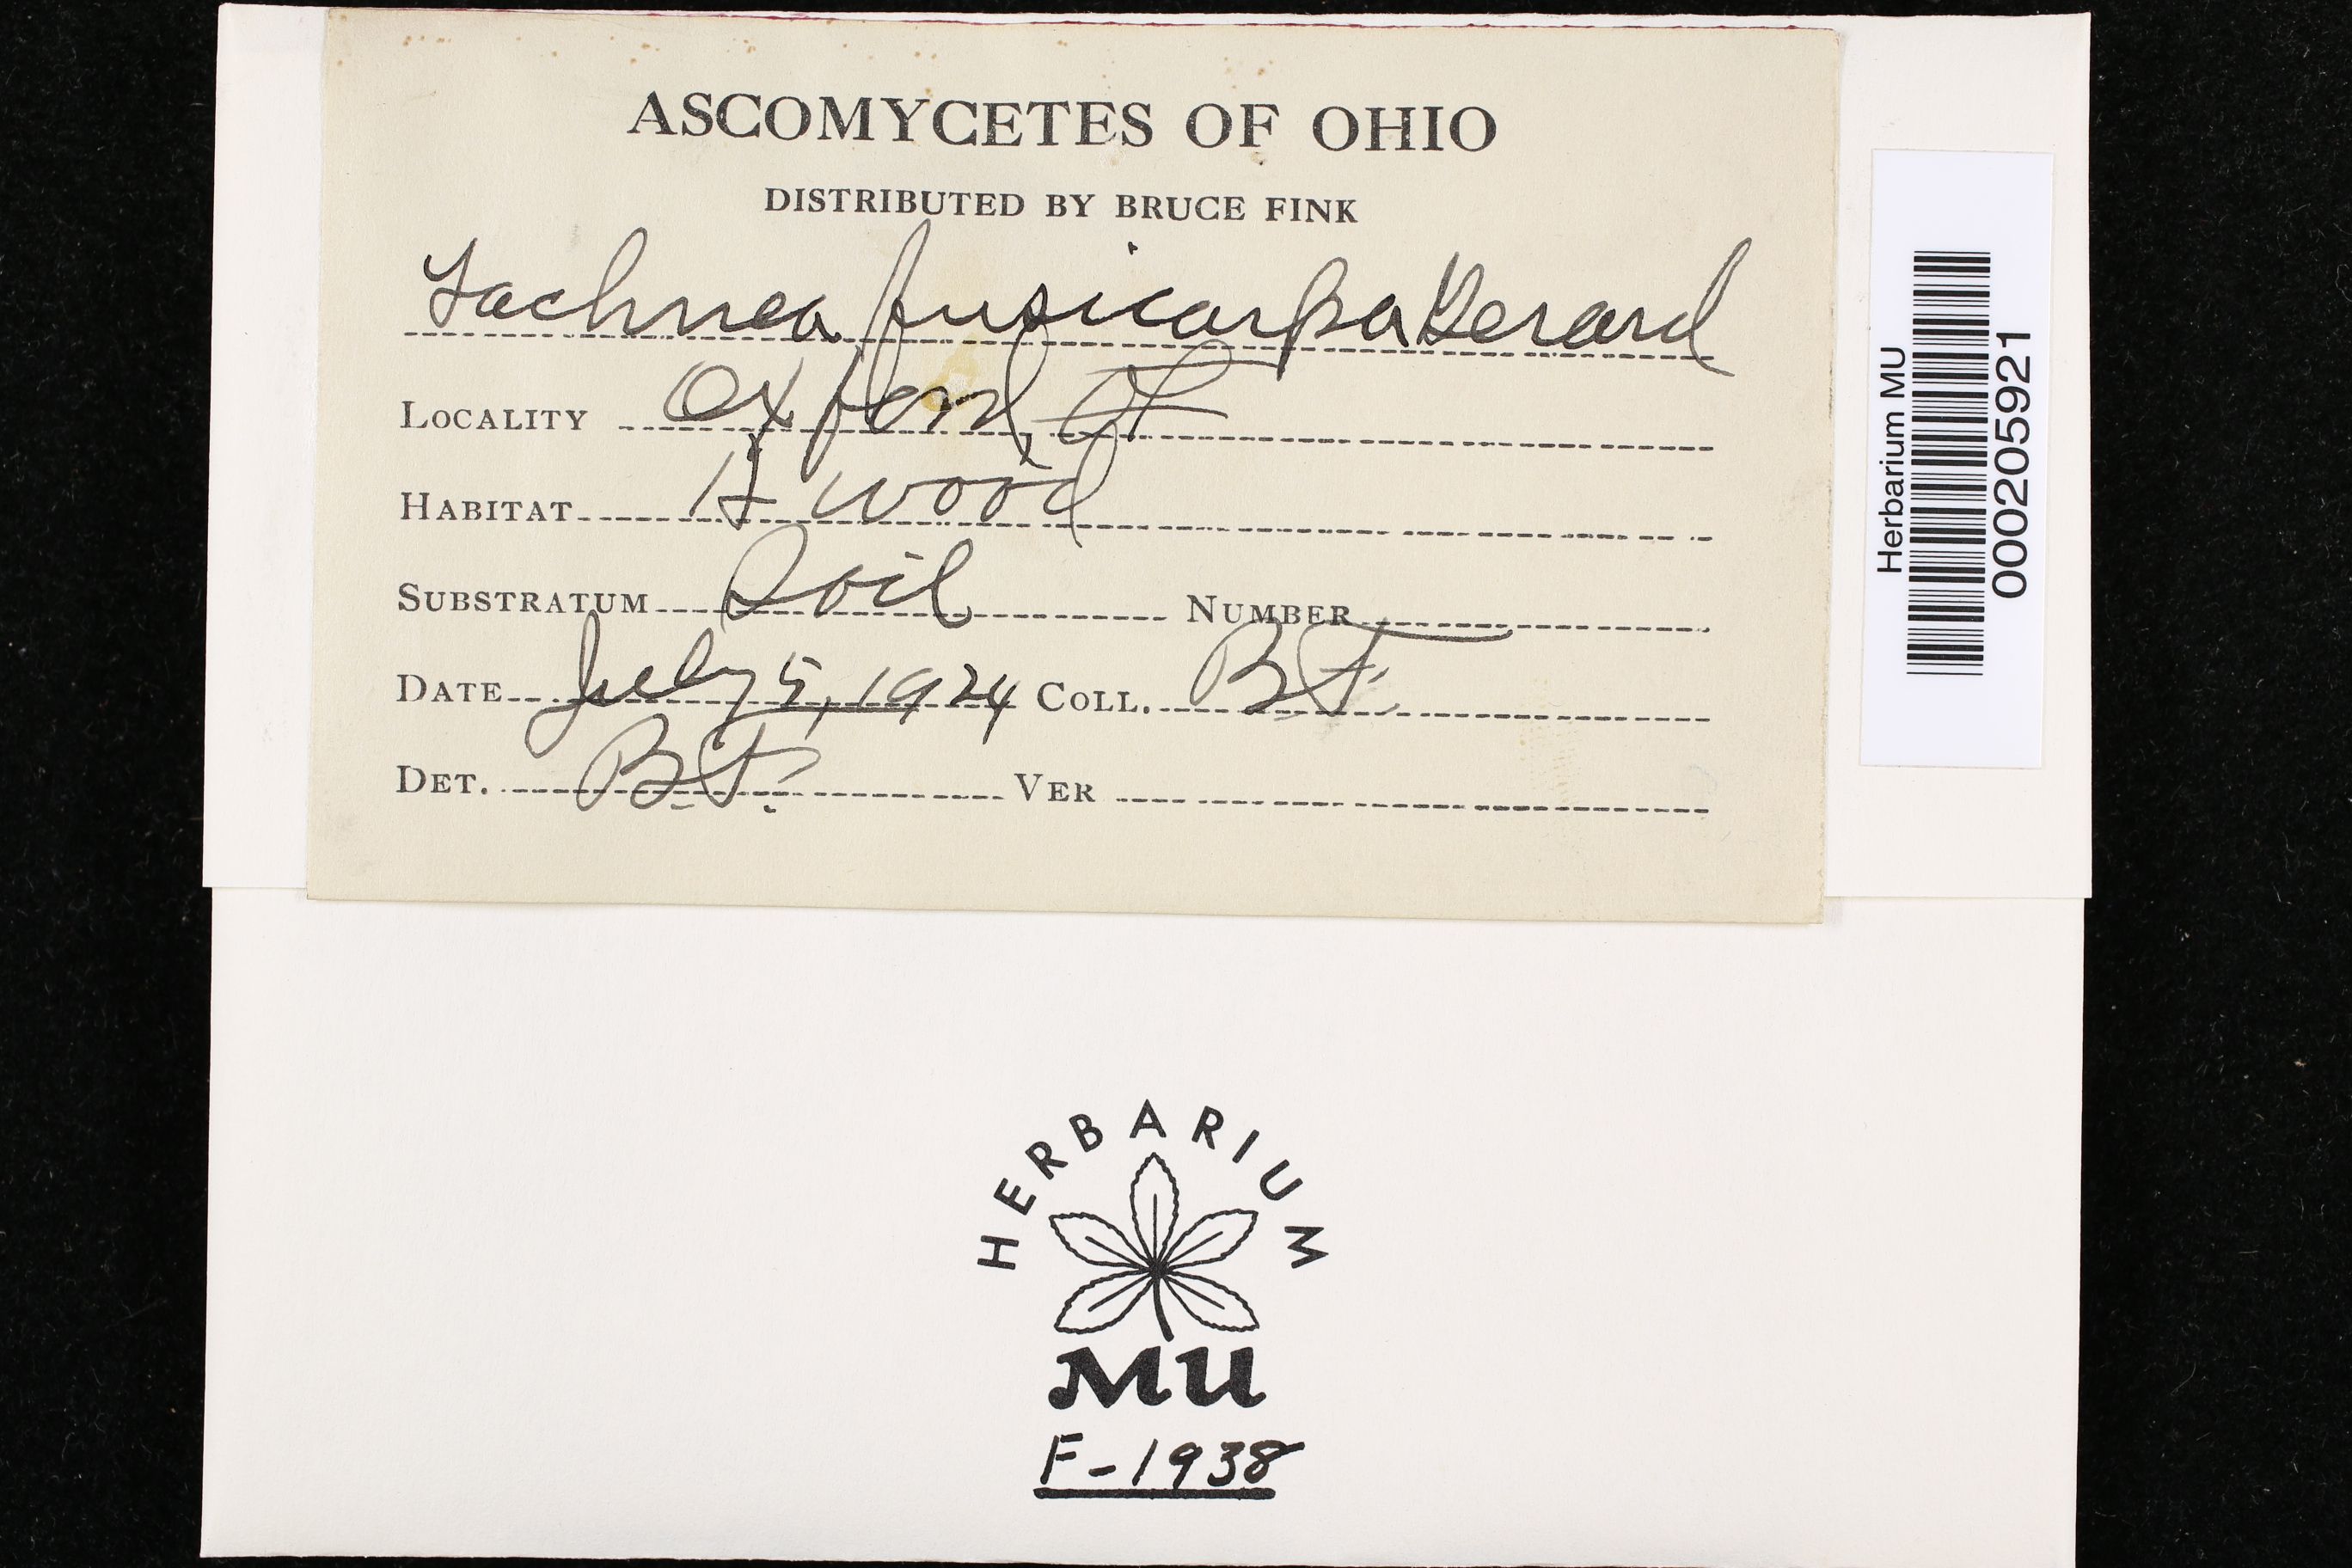 ASCOMYCETES OF OHIO
DISTRIBUTED BY BRUCE FINK
Lachnea fusicarpa Gerard
LOCALITY Oxford, O
HABITAT wood
SUBSTRATUM Soil NUMBER
DATE July 5, 1924 COLL. B F
DET. B. F. VER
Herbarium MU
000205921
HERBARIUM
MU
F-1938